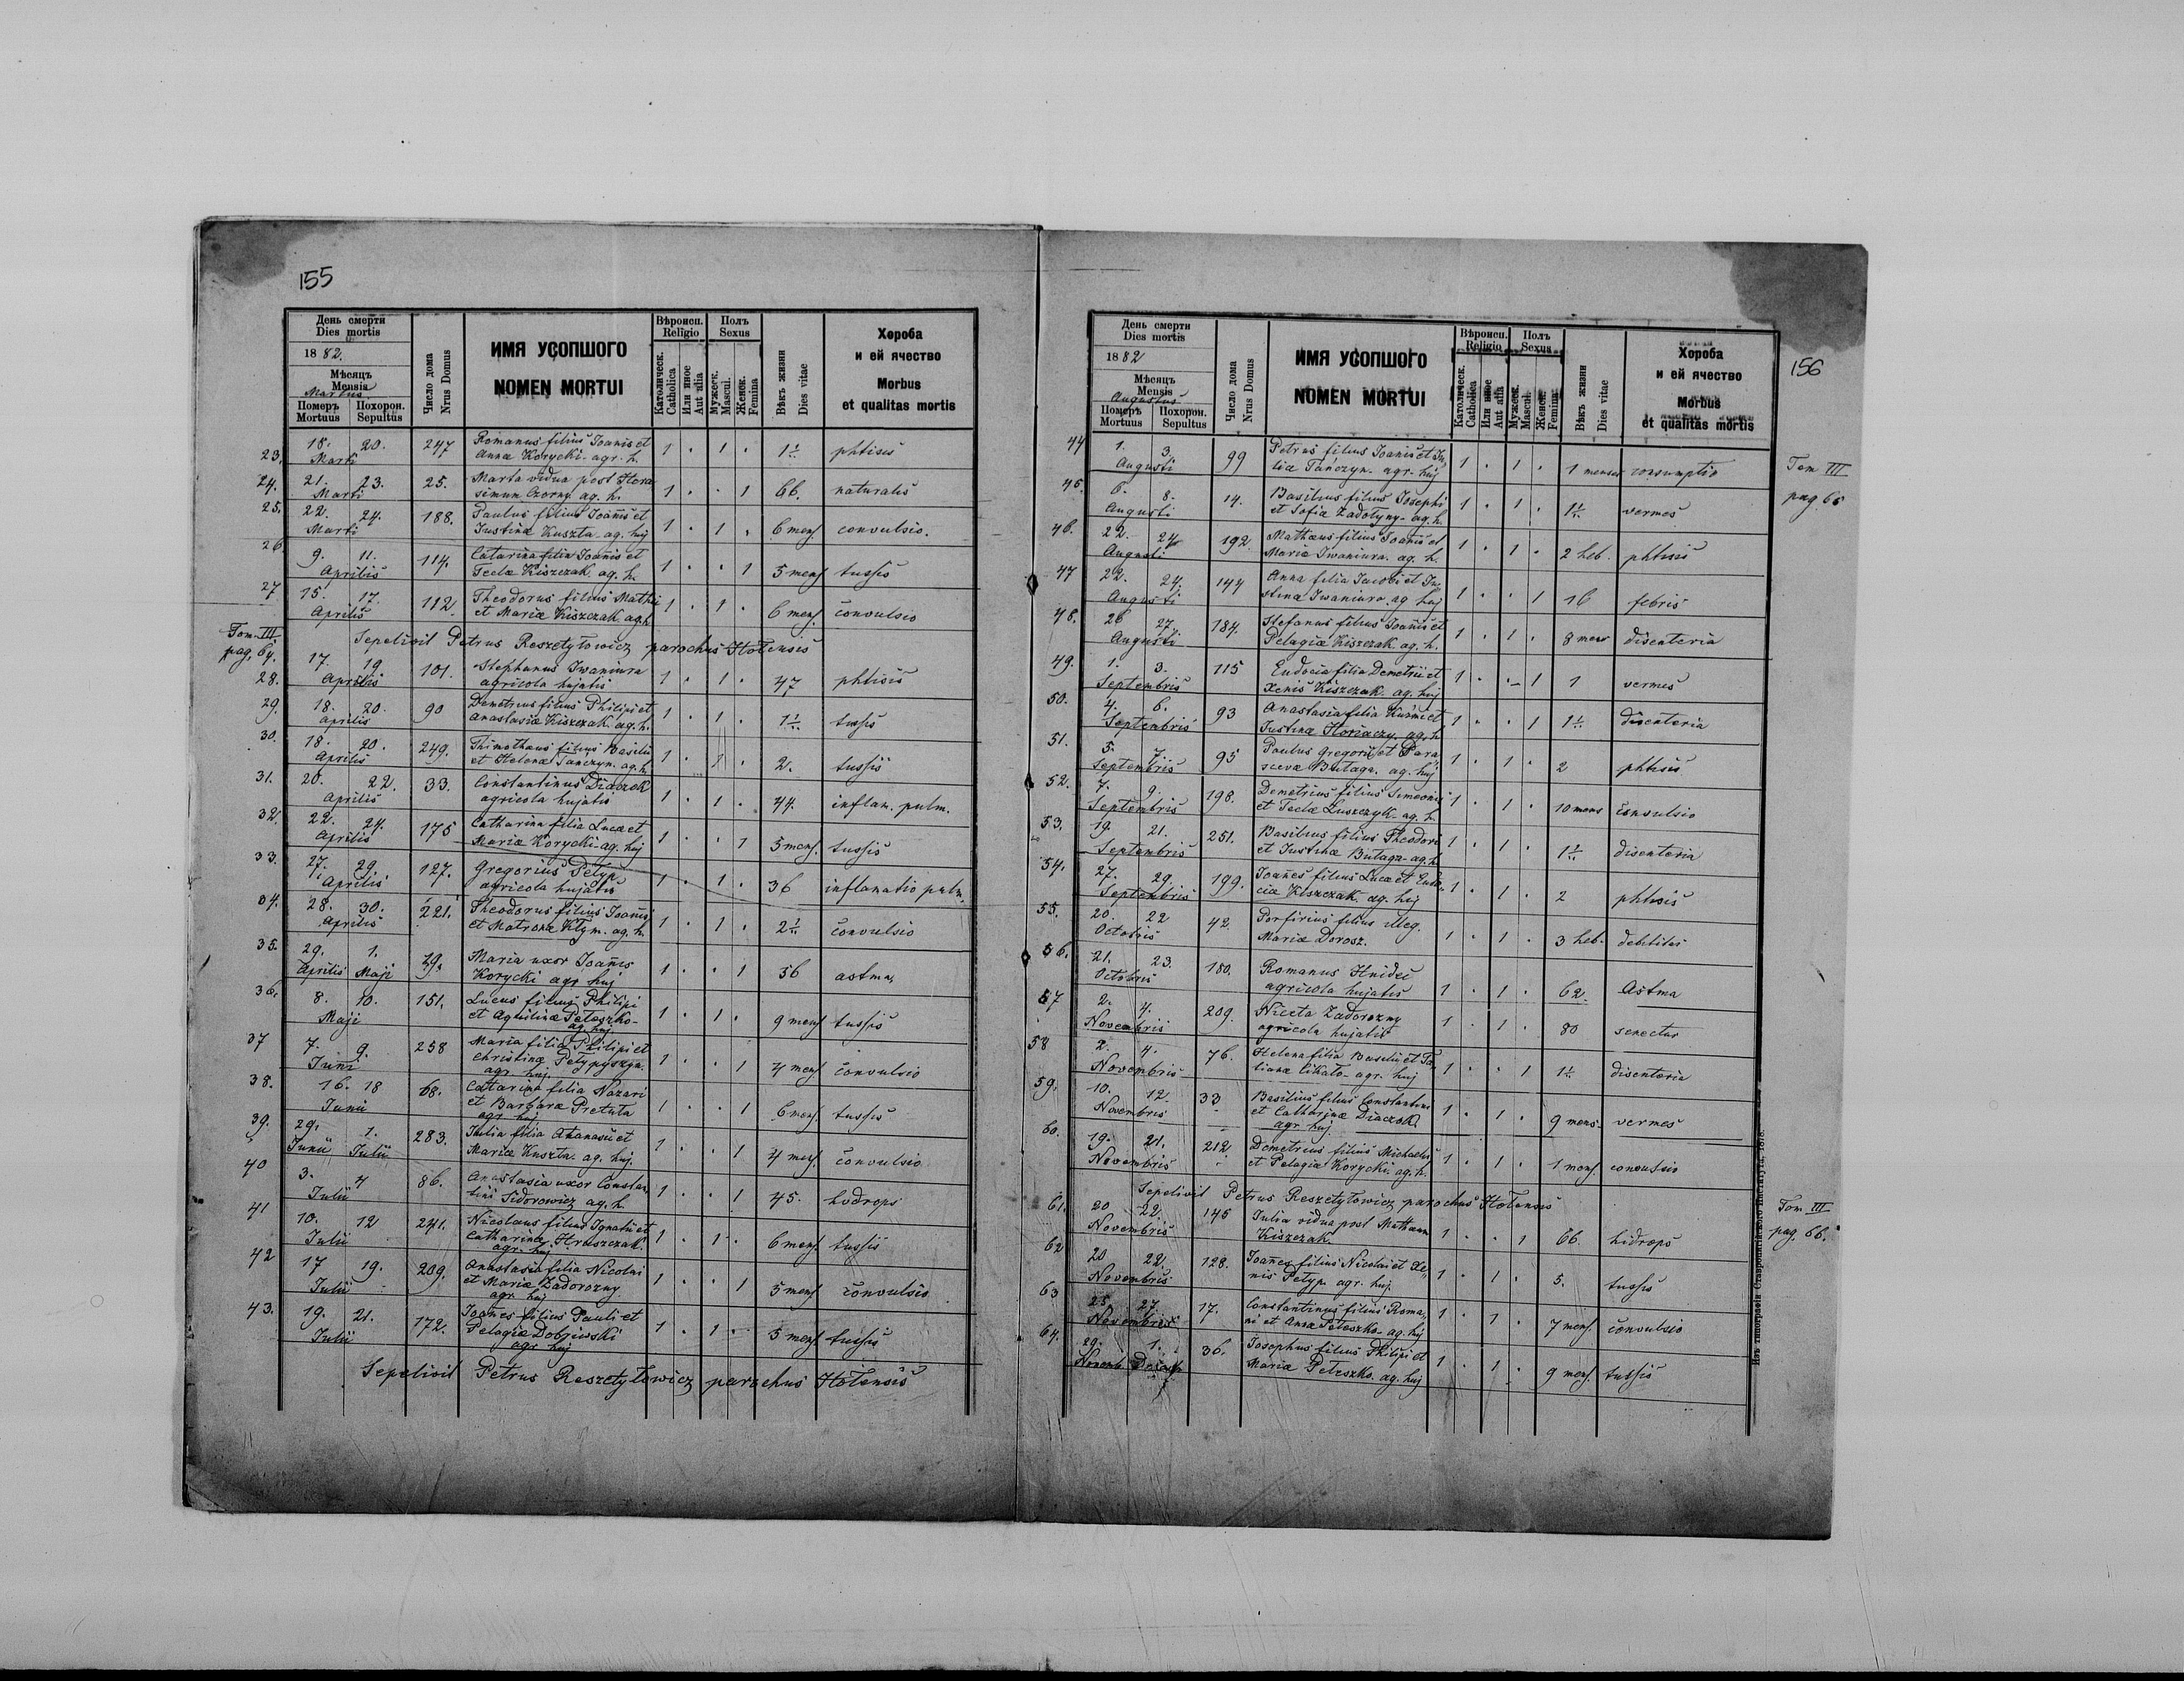 155
День смерти
Dies mortis
1882.
Мѣсяцъ
Mensis
Martius
Померъ Mortuus
Похорон. Sepultus
Число дома
Nrus Domus
ИМЯ УСОПШОГО
NOMEN MORTUI
Вѣроисп.
Religio
Католическ.
Catholica
Или иное
Aut alia
Полъ
Sexus
Мужеск.
Mascul.
Женск.
Femina
Вѣкъ жизни
Dies vitae
Хороба
и ей ячество
Morbus
et qualitas mortis
23. 18. 20. 247 Romanus filius Joanis et 1 . 1 . 1½ phtisis
Marti Annæ Korycki - agr. h.
24. 21. 23. 25. Marta vidua post Hera 1 . . 1 66. naturalis
Marti simum Czorny ag. h.
25. 22. 24. 188. Paulus filius Joañis et 1 . 1 . 6 mens. convulsio.
Marti Justinæ Kuszta - ag. huj
26. 9. 11. 114. Catarina filia Joañis et 1 . . 1 5 mens. tussis
Aprilis Teclæ Kiszczak ag. h.
27 15. 17. 112. Theodorus filius Mathi 1 . 1 . 6 mens. convulsio
Aprilis et Mariæ Kiszczak ag. h.
Tom. III.
pag. 64.
Sepelivit Petrus Reszetyłowicz parochus Hotensis
28. 17. 19 101. Stephanus Iwaniura 1 . 1 . 47 phtisis
Aprilis agricola hujatis
29. 18. 20. 90 Demetrius filius Philipi et 1 . 1 . 1½ tussis
Aprilis Anastasiæ Kiszczak ag. h.
30. 18. 20. 249. Thimothæus filius Basilii 1 . 1 . 2. tussis
Aprilis et Helenæ Tańczyn. ag. h
31. 20. 22. 33. Constantinus Diaczok 1 . 1 . 44. inflam. pulm.
Aprilis agricola hujatis
32. 22. 24. 175 Catharina filia Lucæ et 1 . . 1 5 mens. tussis
Aprilis Mariæ Korycki - ag. huj
33. 27. 29. 127. Gregorius Petyp 1 . 1 . 36 inflamatio pulm.
Aprilis agricola hujatis
34. 28. 30. 221. Theodorus filius Joañis 1 . 1 . 2½ convulsio
Aprilis et Matronæ Kłym. ag. h.
35. 29. 1. 79. Maria uxor Joañis 1 . . 1 56 astma
Aprilis Maji Korycki agr huj
36. 8. 10. 151. Lucas filius Philipi 1 . 1 . 9 mens tussis
Maji et Aquilinæ Peteszko-
ag. huj
37 7. 9. 258 Maria filia Philipi et 1 . . 1 4 mens convulsio
Junii Christinæ Petypyszyn.
agr. huj.
38. 16. 18 68. Catarina filia Nazari 1 . . 1 6 mens. tussis
Junii et Barbaræ Pretuła
agr. huj
39. 29. 1. 283. Julia filia Athanasii et 1 . . 1 4 mens. convulsio
Junii Julii Mariæ Kuszta. ag. huj.
40 3. 4 86. Anastasia uxor Constan 1 . . 1 45. hydrops
Julii tini Sidorowicz ag. h.
41 10. 12 241. Nicolaus filius Ignatii et 1 . 1 . 6 mens. tussis
Julii Catharinæ Hruszczak.
agr. huj
42 17 19. 209. Anastasia filia Nicolai 1 . . 1 5 mens convulsio
Julii et Mariæ Zadorozny
agr. huj
43. 19. 21. 172. Joañes filius Pauli et 1 . 1 . 5 mens. tussis
Julii Pelagiæ Dobjiwski
agr huj
Sepelivit Petrus Reszetyłowicz parochus Hotensis
156
День смерти
Dies mortis
1882
Мѣсяцъ
Mensis
Augustus
Померъ Mortuus
Похорон. Sepultus
Число дома
Nrus Domus
ИМЯ УСОПШОГО
NOMEN MORTUI
Вѣроисп.
Religio
Католическ.
Catholica
Или иное
Aut alia
Полъ
Sexus
Мужеск.
Mascul.
Женск.
Femina
Вѣкъ жизни
Dies vitae
Хороба
и ей ячество
Morbus
et qualitas mortis
44 1. 3. 99 Petrus filius Joanis et Ju 1 . 1 . 1 mensis consumptio
Augusti liæ Tańczyn - agr. huj
Tom III
pag. 65
45. 6. 8. 14. Basilius filius Josephi 1 . 1 . 1½ vermes
Augusti et Sofiæ Zadotyny - ag. h.
46. 22. 24 192. Mathæus filius Joañis et 1 . 1 . 2 heb. phtisis
Augusti Mariæ Iwaniura. ag. h.
47 22. 24. 144 Anna filia Jacobi et Ju 1 . . 1 16 febris
Augusti stinæ Iwaniura. ag huj
48. 26 27. 184. Stefanus filius Joañis et 1 . 1 . 8 mens disenteria
Augusti Pelagiæ Kiszczak ag. h.
49. 1. 3. 115 Eudocia filia Demetrii et 1 . . 1 1 vermes
Septembris Xeniæ Kiszczak. ag. huj
50. 4. 6. 93 Anastasia filia Kuzmi et 1 . . 1 1½ disenteria
Septembris Justinæ Horiaczy. ag. h
51. 5. 7. 95 Paulus Gregorii et Para 1 . 1 . 2 phtisis
Septembris scevæ Butaga. ag. huj
52. 7. 9. 198. Demetrius filius Simeonis 1 . 1 . 10 mens convulsio
Septembris et Teclæ Luszczyk - ag. h.
53. 19. 21. 251. Basilius filius Theodori 1 . 1 . 1½ disenteria
Septembris et Justinæ Butaga - ag. h.
54. 27. 29. 199. Joañes filius Lucæ et Eudo 1 . 1 . 2 phtisis
Septembris ciæ Kiszczak ag. huj
55. 20. 22 42. Porfirius filius illeg. 1 . 1 . 3 heb. debilitas
Octobris Mariæ Dorosz.
56. 21. 23. 180. Romanus Hnidei 1 . 1 . 62. Astma
Octobris agricola hujatis
57 2. 4. 209. Niceta Zadorozny 1 . 1 . 80 senectus
Novembris agricola hujatis
58 2. 4. 76. Helena filia Basilii et Ta 1 . . 1 1½ disenteria
Novembris tianæ Cikało - agr. huj
59. 10. 12. 33 Basilius filius Constantini 1 . 1 . 9 mens. vermes
Novembris et Catharinæ Diaczok
agr huj
60. 19. 21. 212 Demetrius filius Michaelis 1 . 1 . 1 mens. convulsio
Novembris et Pelagiæ Korycki. ag. h.
Sepelivit Petrus Reszetyłowicz parochus Hotensis
Tom III
pag. 66.
61. 20 22. 145 Julia vidua post Mathæum 1 . . 1 66. hidrops
Novembris Kiszczak.
62 20 22. 128. Joañes filius Nicolai et Xe 1 . 1 . 5. tussis
Novembris niæ Petyp. agr. huj.
63 25 27. 17. Constantinus filius Roma 1 . 1 . 7 mens. convulsio
Novembris ni et Annæ Peteszko - ag. huj
64. 29. 1. 36. Josephus filius Philipi et 1 . 1 . 9 mens. tussis
Novemb. Mariæ Peteszko. ag. huj
Изъ типографіи Ставропигійского Института, 1878.